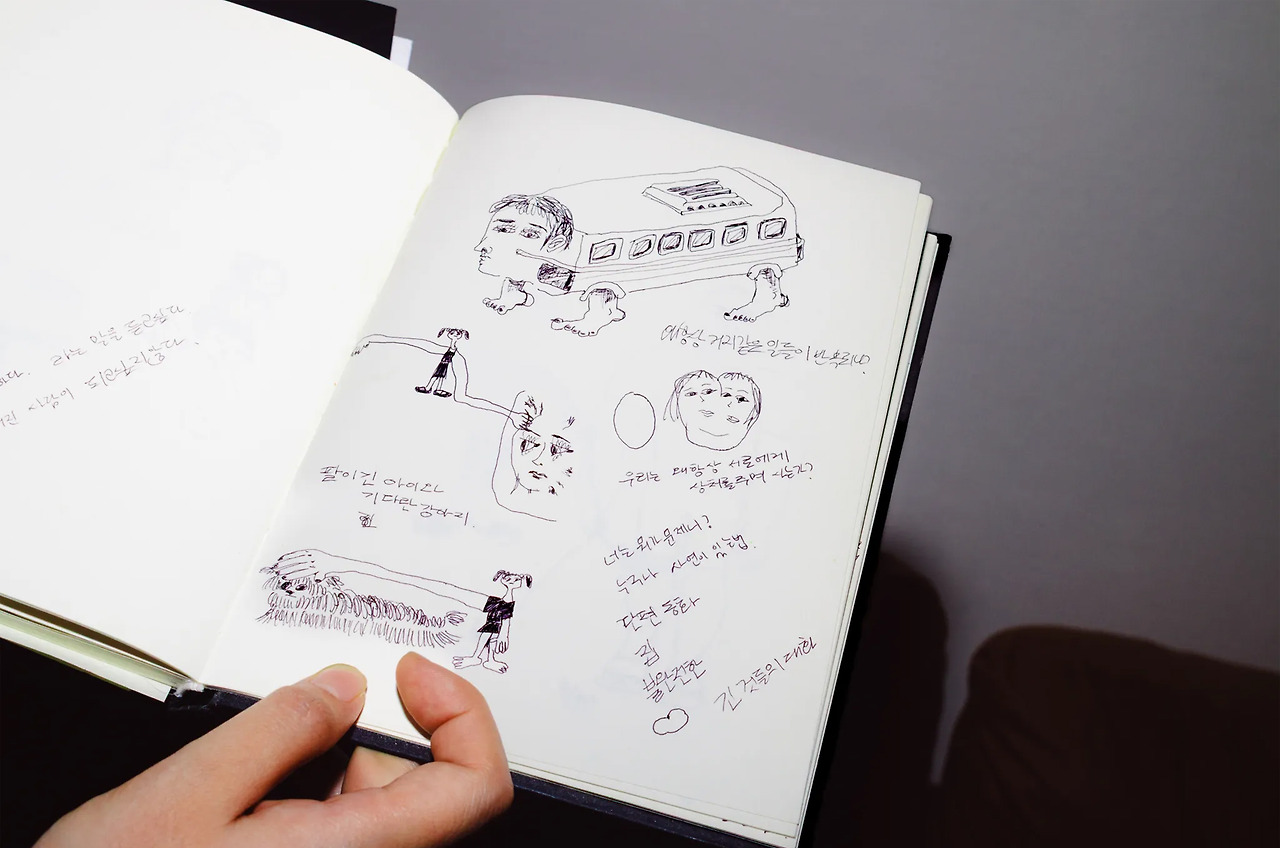 라는 말을 듣고싶다
사람이 되고싶다.
왜 항상 거지같은 일들이 반복되냐?
우리는 왜 항상 서로에게
상처를 주며 사는가?
팔이 긴 아이와
기다란 강아지.
너는 뭐가 문제니?
누구나 사연이 있는법.
단편 동화
집
불완전한
긴 것들의 대한